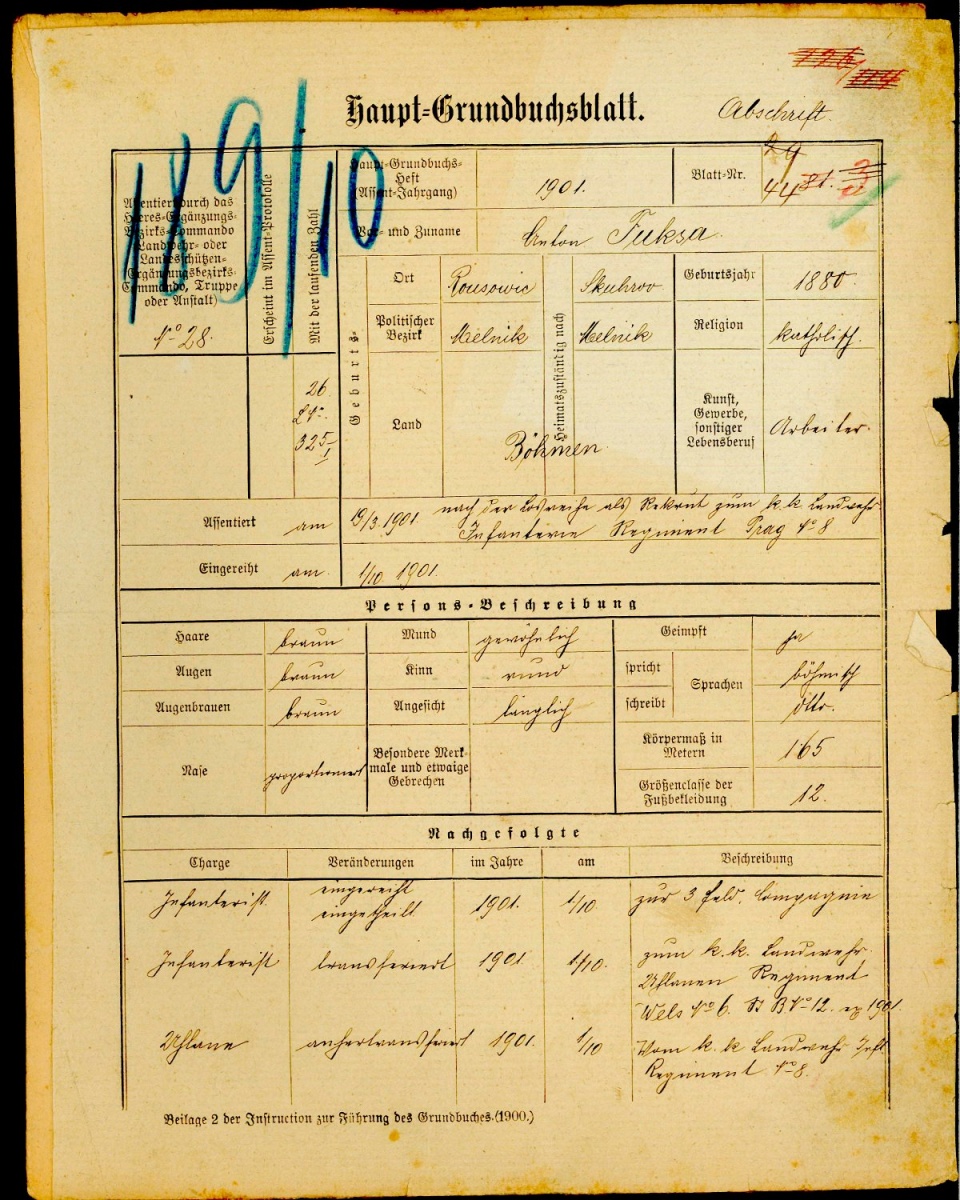 126/04
Haupt=Grundbuchsblatt.
Abschrift.
189/10
Assentiert durch das
Heeres=Ergänzungs=
Bezirks=Commando
Landwehr= oder
Landesschützen=
Ergänzungsbezirks=
Commando, Truppe
oder Anstalt)
No 28.
Erscheint im Assent=Protokolle
Mit der laufenden Zahl
26
325
Haupt=Grundbuchs=
Heft
(Assent=Jahrgang)
1901.
Blatt=Nr.
29
44 81. 3
Vor= und Zuname
Anton Fuksa.
Geburts=
Ort
Rousowic
Heimatszuständig nach
Skuhrov
Geburtsjahr
1880.
Politischer
Bezirk
Melnik
Melnik
Religion
katholisch.
Land
Böhmen
Kunst,
Gewerbe,
sonstiger
Lebensberuf
Arbeiter.
Assentiert am 19/3.1901. nach der Losreihe als Rekrut zum k.k. Landwehr
Infanterie Regiment Prag No 8
Eingereiht am. 1/10 1901.
Persons=Beschreibung
Haare braun Mund gewöhnlich Geimpft ja
Augen braun Kinn rund spricht Sprachen böhmisch
Augenbrauen braun Angesicht länglich schreibt dtto.
Nase proportioniert
Besondere Merk=
male und etwaige
Gebrechen
Körpermaß in
Metern
1·65
Größenclasse der
Fußbekleidung
12.
Nachgefolgte
Charge Veränderungen im Jahre am Beschreibung
Infanterist eingereiht
eingetheilt 1901. 1/10. zur 3 Feld. Compagnie
Infanterist transferiert 1901 1/10. zum k.k. Landwehr
Uhlanen Regiment
Wels No 6. B No 12. ex 1901.
Uhlane anhertransferiert 1901. 1/10 Vom k.k Landwehr Inft
Regiment No 8.
Beilage 2 der Instruction zur Führung des Grundbuches.(1900.)